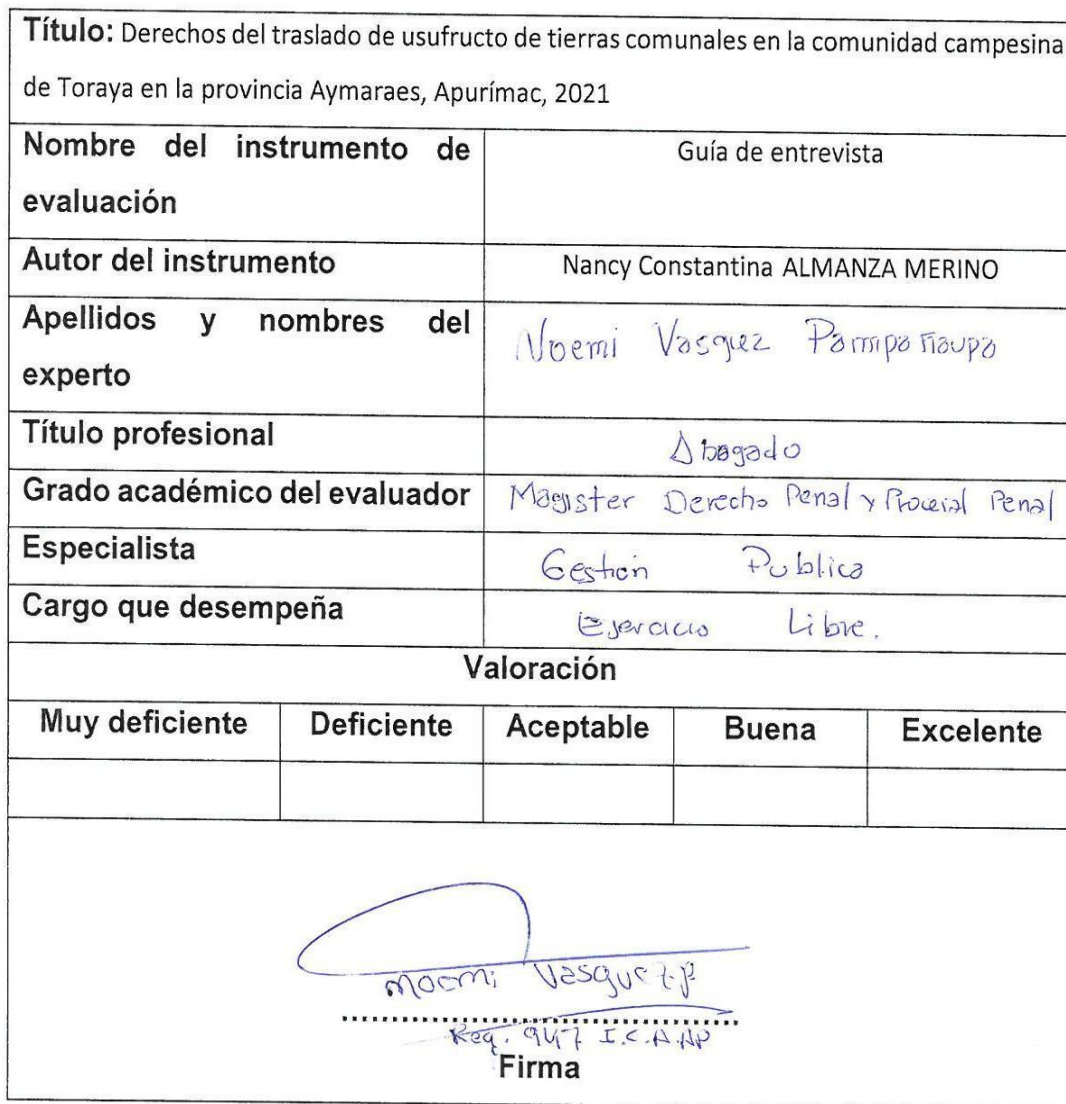 Título: Derechos del traslado de usufructo de tierras comunales en la comunidad campesina
de Toraya en la provincia Aymaraes, Apurímac, 2021
Nombre del instrumento de
evaluación
Guía de entrevista
Autor del instrumento
Nancy Constantina ALMANZA MERINO
Apellidos y nombres del
experto
Noemi Vasquez Pampañaupa
Título profesional
Abogado
Grado académico del evaluador
Magister Derecho Penal y Procesal Penal
Especialista
Gestion Publica
Cargo que desempeña
Ejercicio Libre.
Valoración
Muy deficiente Deficiente Aceptable Buena Excelente
Noemi Vasquez P
Reg. 947 I.C.A.AP
Firma